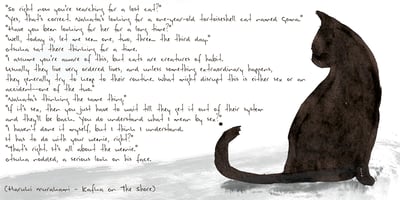 "So right now you're searching for a lost cat?"
"Yes, that's correct. Nakata's looking for a one-year-old tortoiseshell cat named Goma."
"Have you been looking for her for a long time?"
"Well, today is, let me see... one, two, three... the third day."
Otsuka sat there thinking for a time.
"I assume you're aware of this, but cats are creatures of habit.
Usually they live very ordered lives, and unless something extraordinary happens,
they generally try to keep to their routine. What might disrupt this is either sex or an
accident—one of the two."
"Nakata's thinking the same thing."
"If it's sex, then you just have to wait till they get it out of their system
and they'll be back. You do understand what I mean by sex?"
"I haven't done it myself, but I think I understand.
It has to do with your weenie, right?"
"That's right. It's all about the weenie."
Otsuka nodded, a serious look on his face.
(Haruki Murakami - Kafka on the Shore)